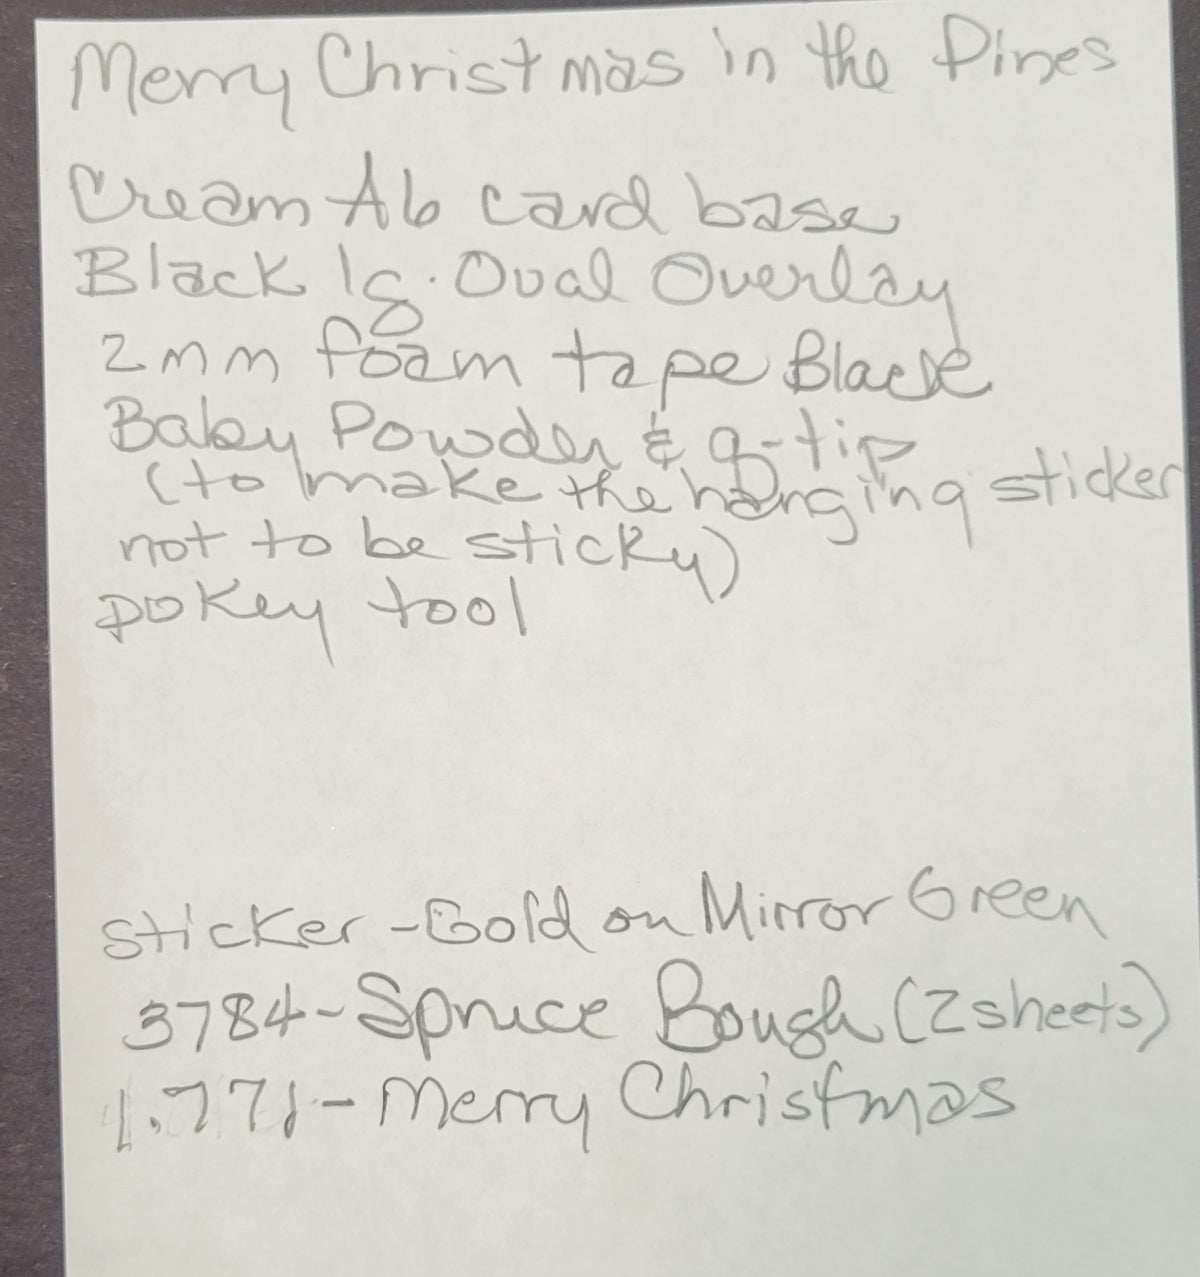 Merry Christmas in the Pines
Cream A6 card base
Black lg. Oval Overlay
2mm foam tape Black
Baby Powder & q-tip
(to make the hanging sticker
not to be sticky)
pokey tool
sticker - Gold on Mirror Green
3784 - Spruce Bough (2 sheets)
1.771 - Merry Christmas